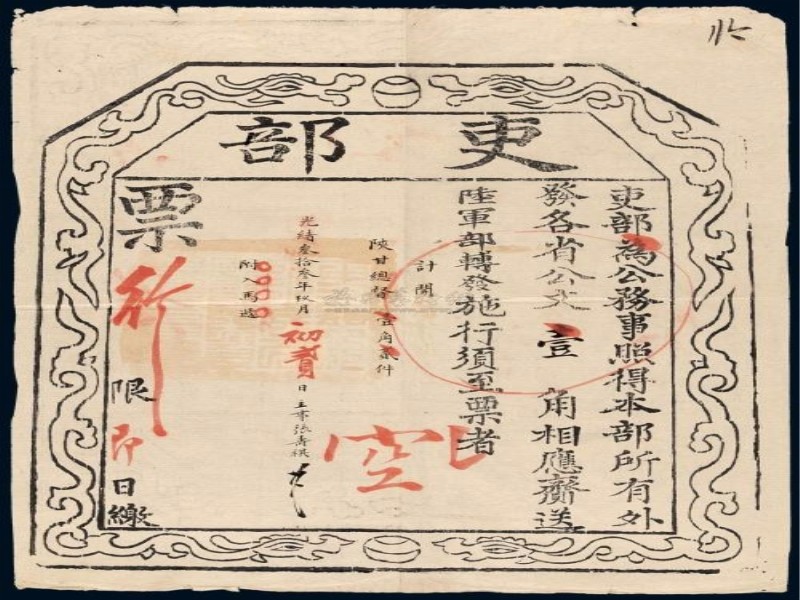 吏部
吏部為公務事照得本部所有外
發各省公文壹角相應齎送
陸軍部轉發施行須至票者
計開
陝甘總督壹角貳件
光緒叁拾叁年玖月初貳日主事張壽祺
附入馬遞
票
行
限即日繳